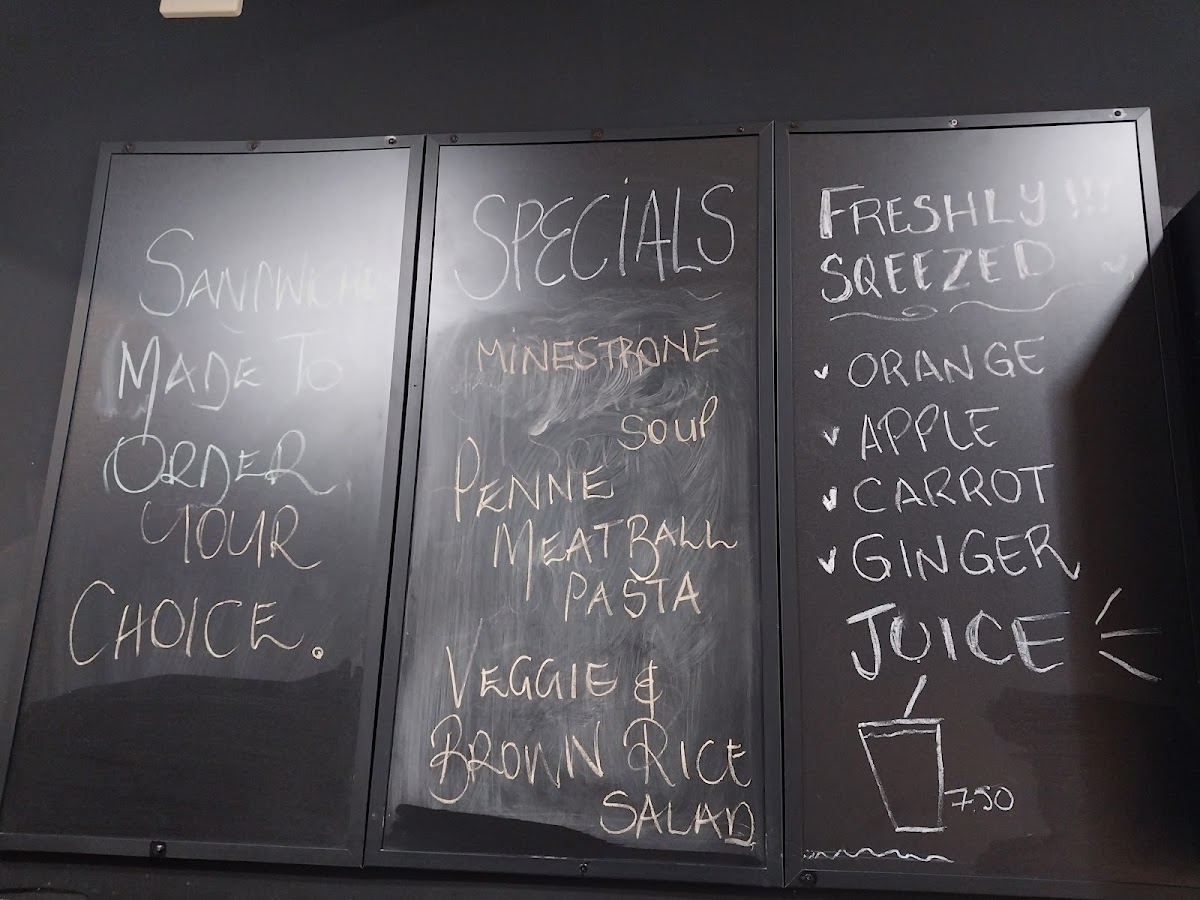 SANDWICHES
MADE TO
ORDER
YOUR
CHOICE.
SPECIALS
MINESTRONE
SOUP
PENNE
MEATBALL
PASTA
VEGGIE &
BROWN RICE
SALAD
FRESHLY !!!
SQEEZED
ORANGE
APPLE
CARROT
GINGER
JUICE
7.50